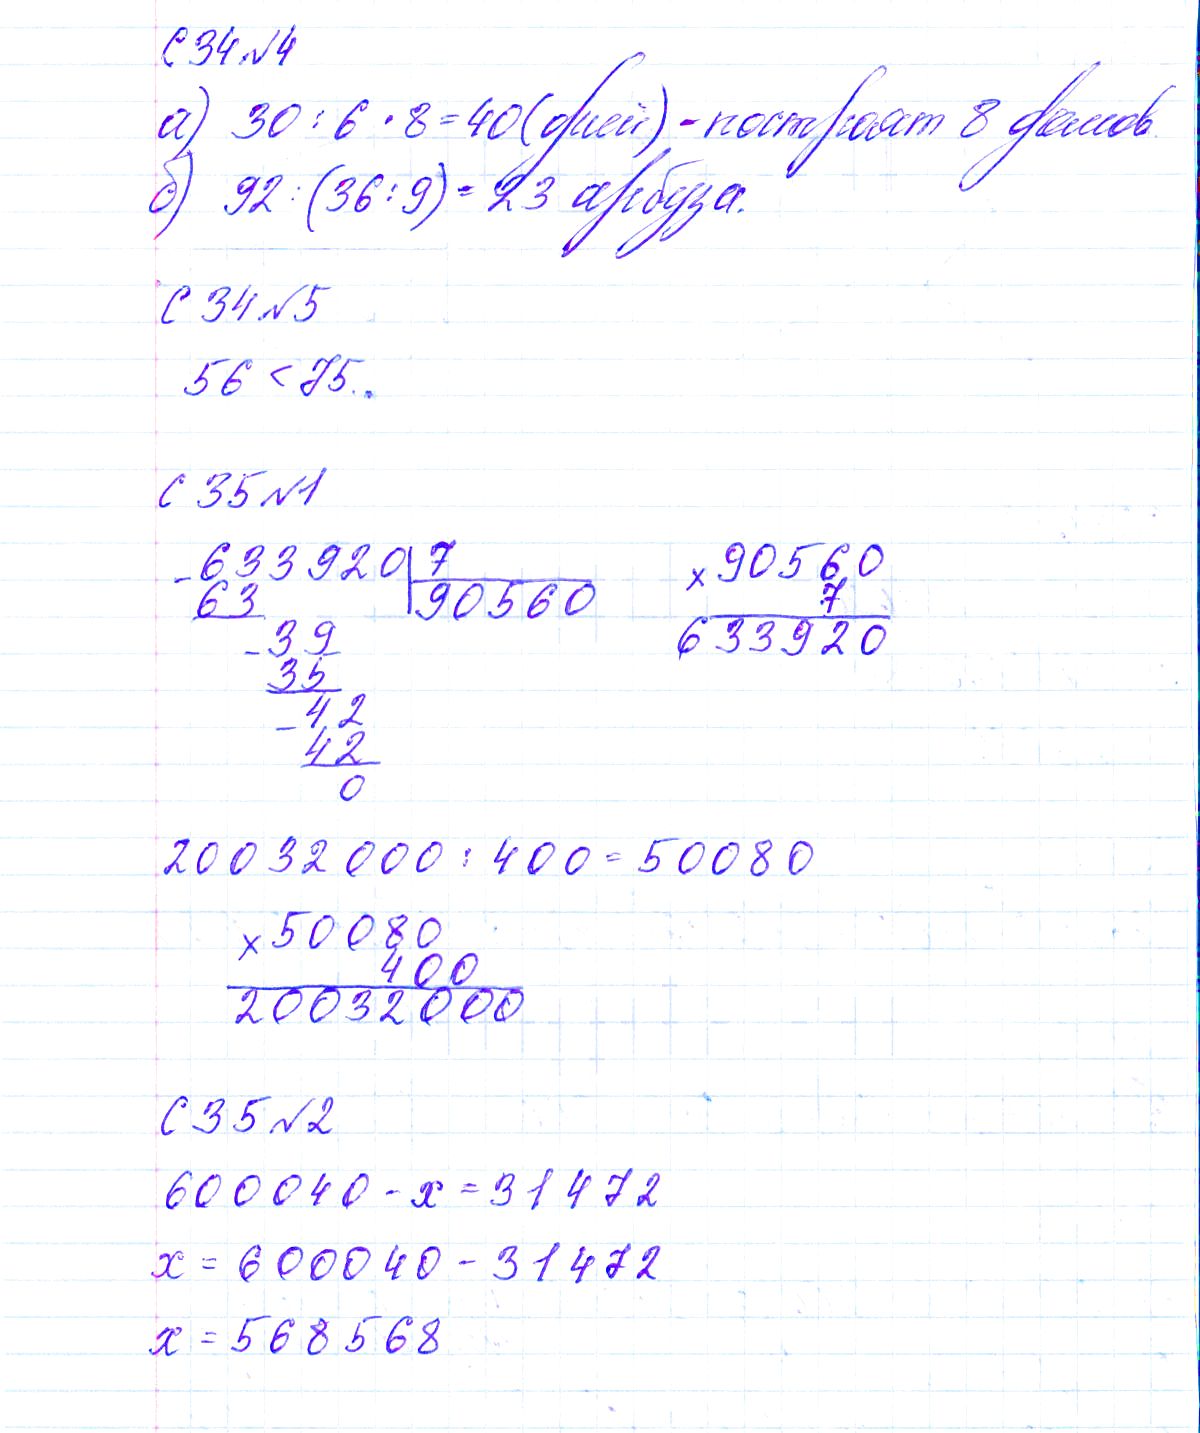 С 34 №4
а) 30 : 6 · 8 = 40 (дней) - построят 8 домов.
б) 92 : (36 : 9) = 23 арбуза.
С 34 №5
56 < 75.
С 35 №1
- 633920 | 7
63 | 90560
- 39
35
- 42
42
0
× 90560
7
633920
20032000 : 400 = 50080
× 50080
400
20032000
С 35 №2
600040 - х = 31472
х = 600040 - 31472
х = 568568